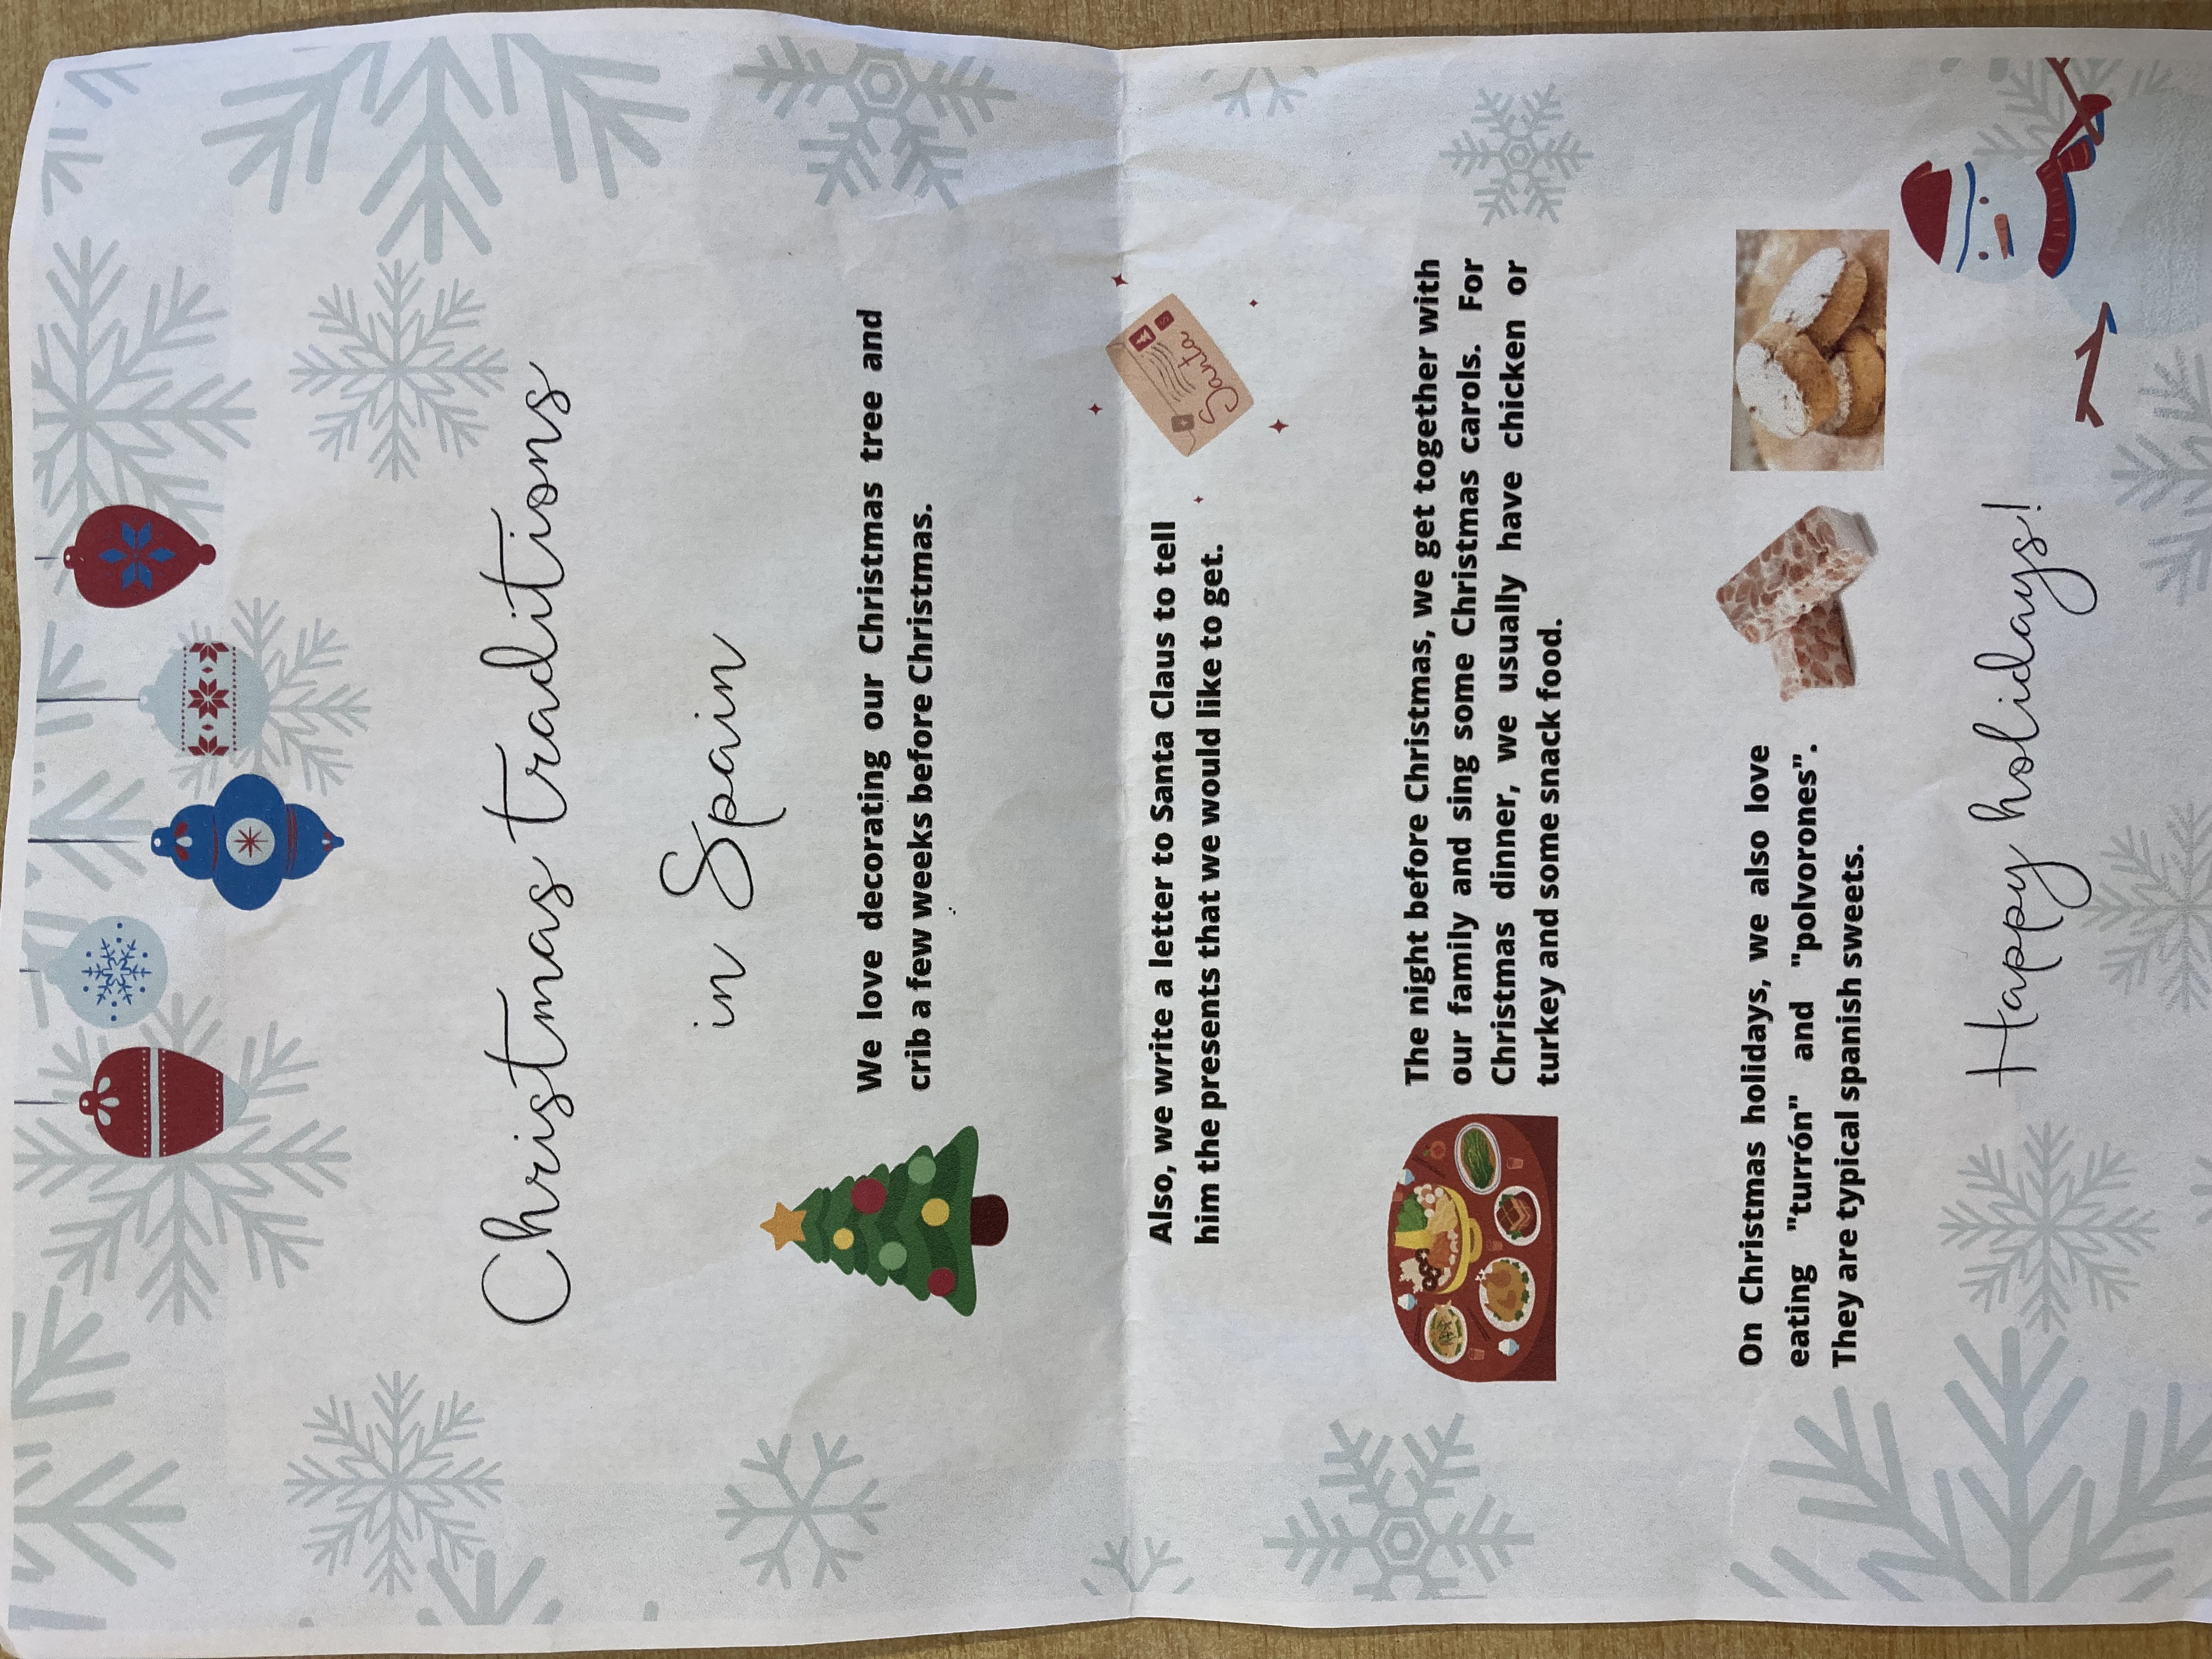 Christmas traditions
in Spain
We love decorating our Christmas tree and
crib a few weeks before Christmas.
Also, we write a letter to Santa Claus to tell
him the presents that we would like to get.
Santa
The night before Christmas, we get together with
our family and sing some Christmas carols. For
Christmas dinner, we usually have chicken or
turkey and some snack food.
On Christmas holidays, we also love
eating "turrón" and "polvorones".
They are typical spanish sweets.
Happy holidays!